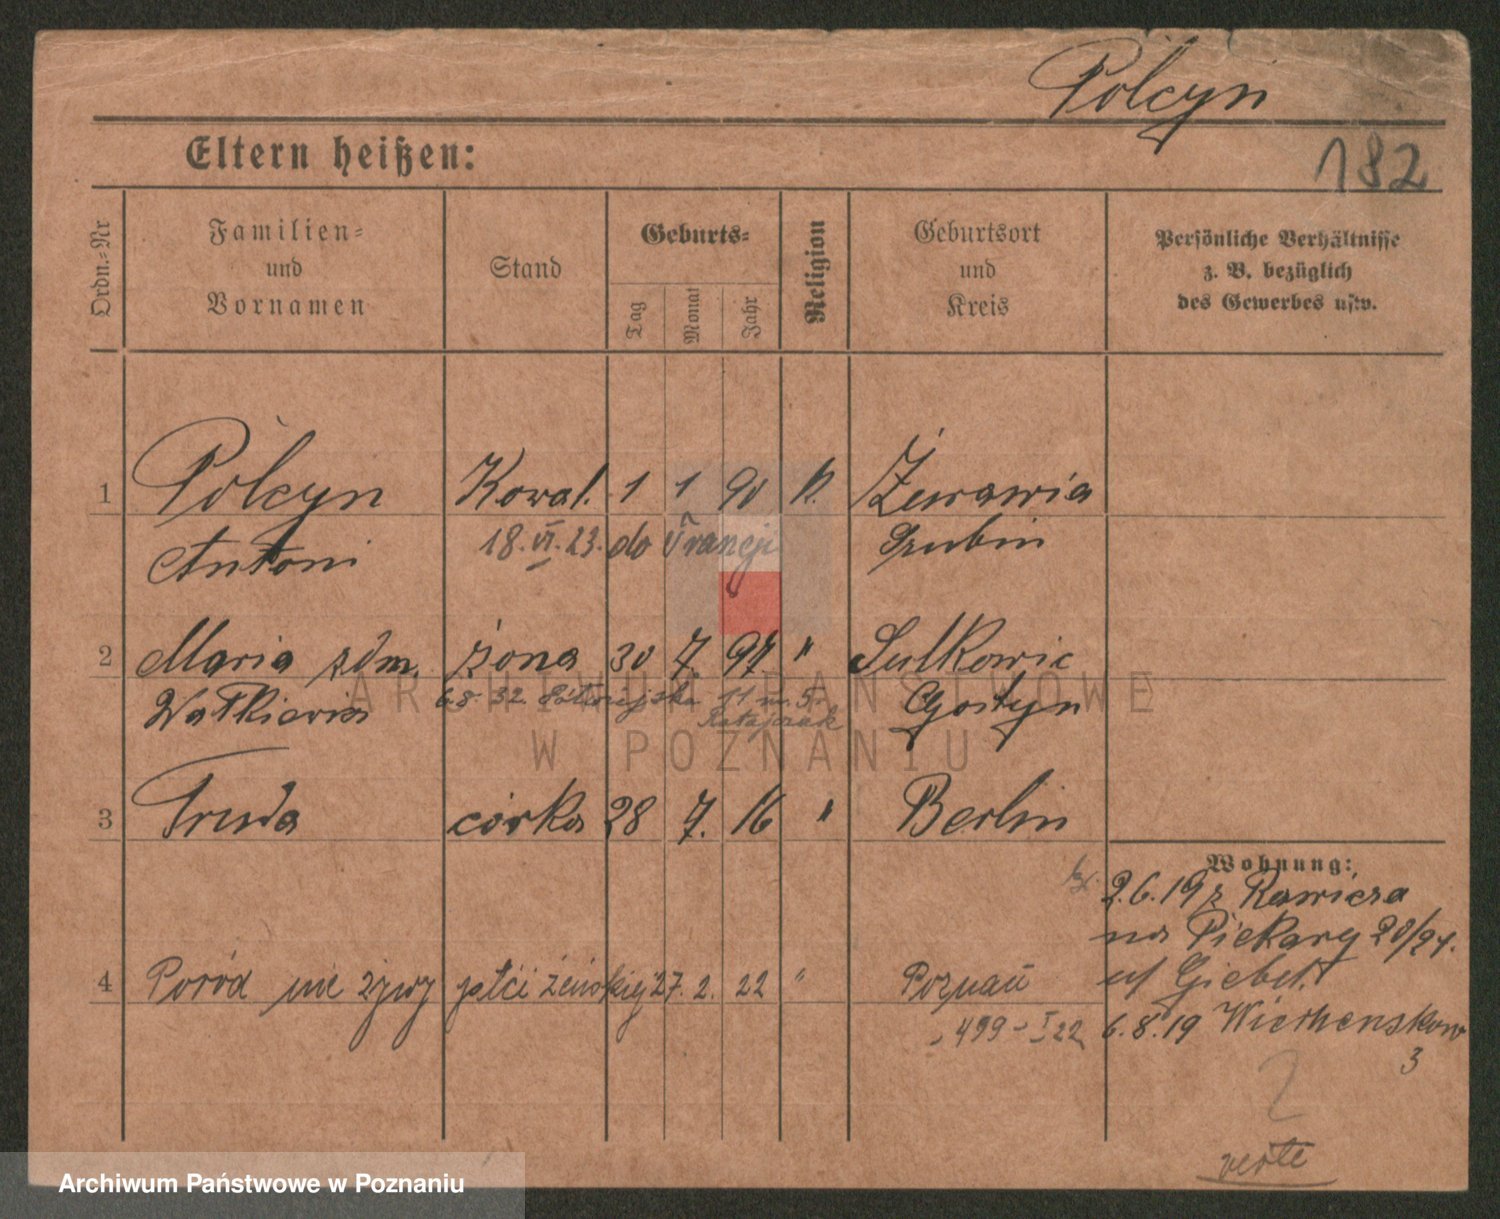 Polcyn
182
Eltern heißen:
Ordn.-Nr
Familien-
und
Vornamen
Stand
Geburts-
Tag
Monat
Jahr
Religion
Geburtsort
und
Kreis
Persönliche Verhältnisse
z. B. bezüglich
des Gewerbes usw.
1 Polcyn Kowal. 1 1 90 k. Żurawia
Antoni 18.VI.23. do Francji Szubin
2 Maria z dm. żona 30 7. 97. " Sulkowic
Watkiewicz 6.8.32. 11 m. 5. Gostyn
Ratajczak
3 Truda córka 28 7. 16 " Berlin
Wohnung:
2.6.19 z Rawicza
na Piekary 20/21.
4 Poród nie żywy płci żeńskiej 27. 2. 22 " Poznań
u/ Giebel.
499 - I 22
6.8.19
3
2
verte
ARCHIWUM PAŃSTWOWE
W POZNANIU
Archiwum Państwowe w Poznaniu